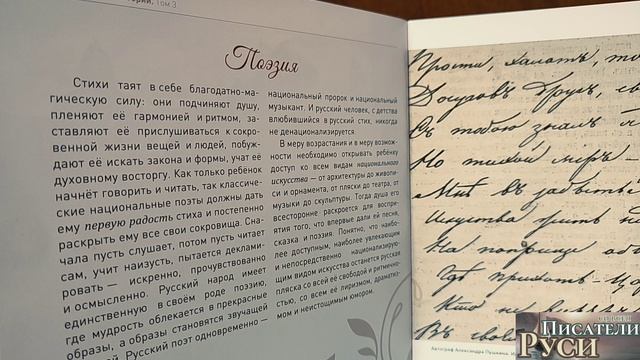 Том 3
Поэзия
Стихи таят в себе благодатно-ма-
гическую силу: они подчиняют душу,
пленяют её гармонией и ритмом, за-
ставляют её прислушиваться к сокро-
венной жизни вещей и людей, побуж-
дают её искать закона и формы, учат её
духовному восторгу. Как только ребёнок
начнёт говорить и читать, так классиче-
ские национальные поэты должны дать
ему первую радость стиха и постепенно
раскрыть ему все свои сокровища. Сна-
чала пусть слушает, потом пусть читает
сам, учит наизусть, пытается деклами-
ровать — искренно, прочувствованно
и осмысленно. Русский народ имеет
единственную в своём роде поэзию,
где мудрость облекается в прекрасные
образы, а образы становятся звучащей
Русский поэт одновременно —
национальный пророк и национальный
музыкант. И русский человек, с детства
влюбившийся в русский стих, никогда
не денационализируется.
В меру возрастания и в меру возмож-
ности необходимо открывать ребёнку
доступ ко всем видам национального
искусства — от архитектуры до живопи-
си и орнамента, от пляски до театра, от
музыки до скульптуры. Тогда душа его
всесторонне раскроется для воспри-
ятия того, что впервые дали ей песня,
сказка и поэзия. Понятно, что наибо-
лее доступным, наиболее увлекающим
и непосредственно национализирую-
щим видом искусства останется русская
пляска со всей её свободой и ритмично-
стью, со всем её лиризмом, драматиз-
мом и неистощимым юмором.
Прости,
Досуговъ другъ,
Съ тобою зналъ я
Но тихой миръ —
Мнѣ въ
Искусства
На поприще
Гдѣ
Кто не
Въ
Автограф Александра Пушкина.
Писатели
Руси